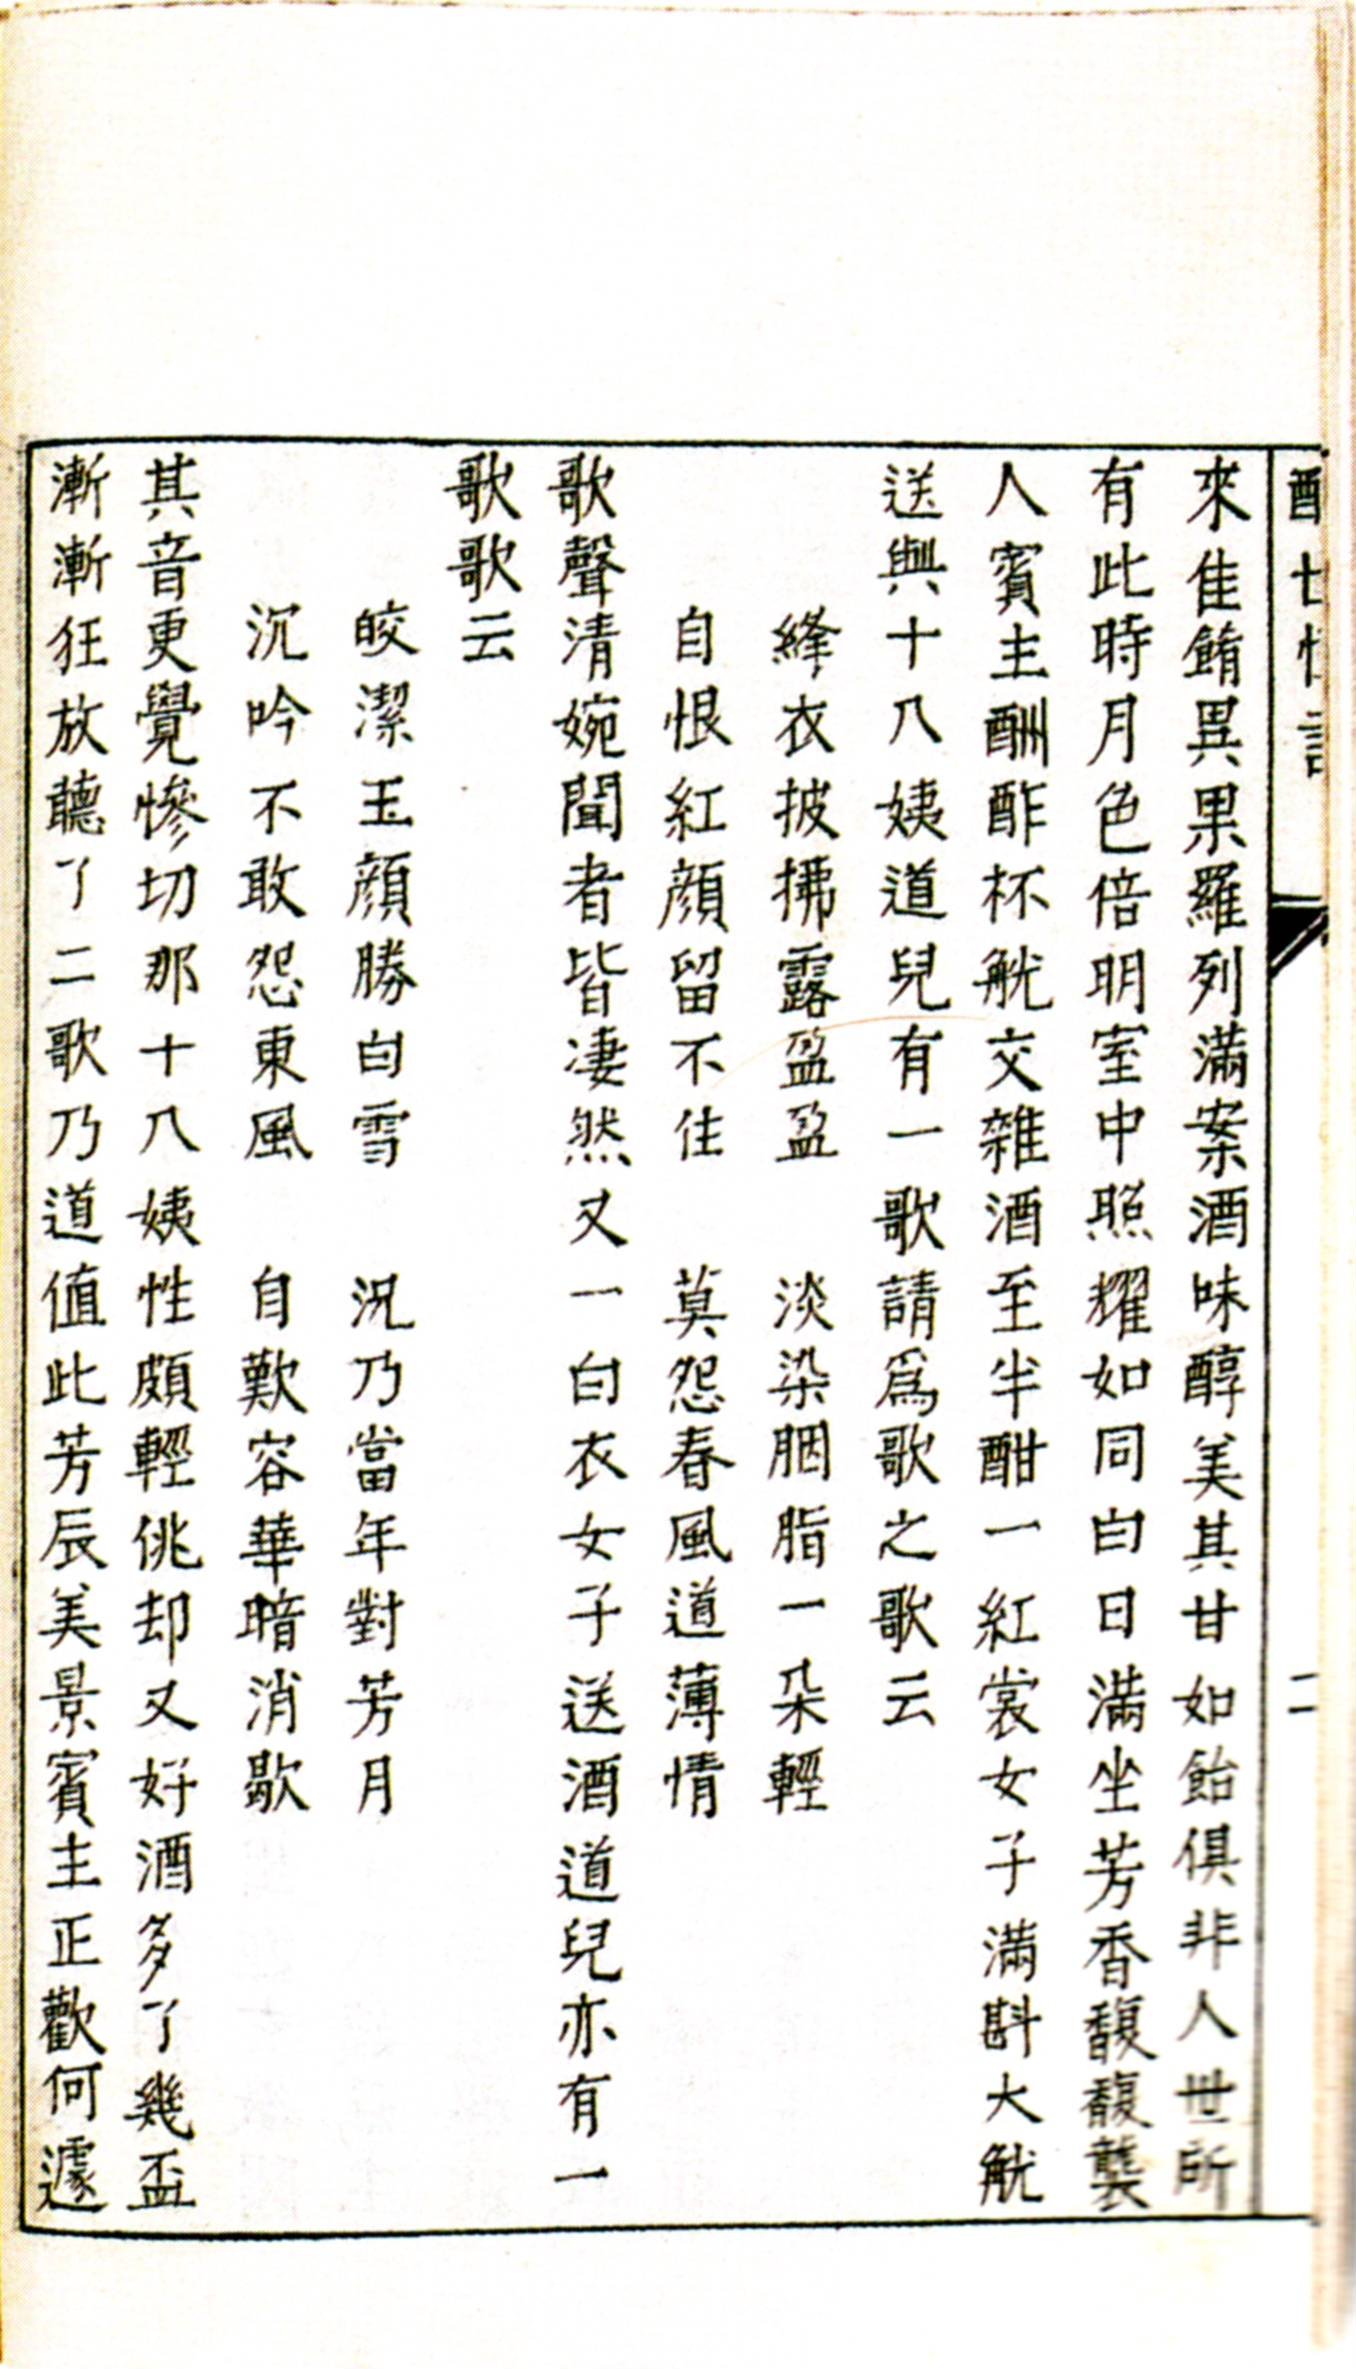 二
來佳餚異果羅列滿案酒味醇美其甘如飴俱非人世所
有此時月色倍明室中照耀如同白日滿坐芳香馥馥襲
人賓主酬酢杯觥交雜酒至半酣一紅裳女子滿斟大觥
送與十八姨道兒有一歌請爲歌之歌云
絳衣披拂露盈盈　淡染胭脂一朵輕
自恨紅顔留不住　莫怨春風道薄情
歌聲清婉聞者皆凄然又一白衣女子送酒道兒亦有一
歌歌云
皎潔玉顔勝白雪　況乃當年對芳月
沉吟不敢怨東風　自歎容華暗消歇
其音更覺慘切那十八姨性頗輕佻却又好酒多了幾盃
漸漸狂放聽了二歌乃道值此芳辰美景賓主正歡何遽